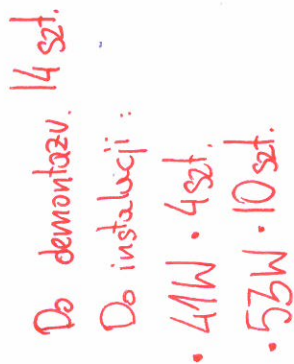 Do demontażu. 14 szt.
Do instalacji:
• 41W • 4szt.
• 53W • 10szt.